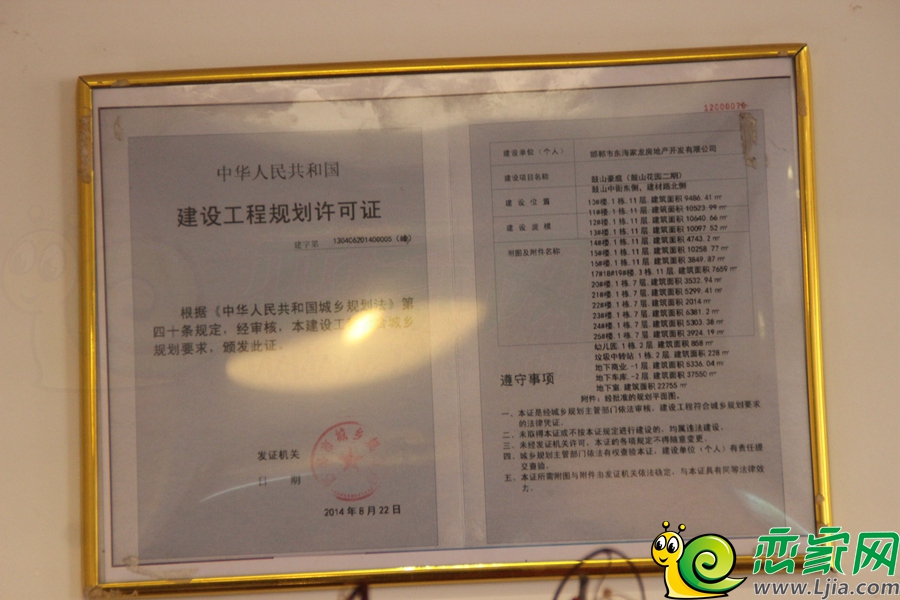 中华人民共和国
建设工程规划许可证
建字第 130406201400005 (峰)
根据《中华人民共和国城乡规划法》第
四十条规定，经审核，本建设工 城乡
规划要求，颁发此证。
发证机关
日 期
2014年8月22日
12006036
建设单位（个人） 邯郸市东海家龙房地产开发有限公司
建设项目名称 鼓山豪庭（鼓山花园二期）
建设位置 鼓山中街东侧，建材路北侧
建设规模
附图及附件名称
10#楼.1栋.11层.建筑面积9486.41㎡
11#楼.1栋.11层.建筑面积10523.99㎡
12#楼.1栋.11层.建筑面积10640.66㎡
13#楼.1栋.11层.建筑面积10097.53㎡
14#楼.1栋.11层.建筑面积4743.2㎡
15#楼.1栋.11层.建筑面积10258.77㎡
16#楼.1栋.11层.建筑面积3849.87㎡
17#18#19#楼.3栋.11层.建筑面积7659㎡
20#楼.1栋.7层.建筑面积3532.94㎡
21#楼.1栋.7层.建筑面积5299.41㎡
22#楼.1栋.7层.建筑面积2014㎡
23#楼.1栋.7层.建筑面积6381.2㎡
24#楼.1栋.7层.建筑面积5303.38㎡
25#楼.1栋.7层.建筑面积3924.19㎡
幼儿园.1栋.2层.建筑面积868㎡
垃圾中转站.1栋.2层.建筑面积228㎡
地下商业.-1层.建筑面积5336.04㎡
地下车库.-2层.建筑面积37550㎡
地下室.建筑面积22755㎡
附件：经批准的规划平面图。
遵守事项
一、本证是经城乡规划主管部门依法审核，建设工程符合城乡规划要求
的法律凭证。
二、未取得本证或不按本证规定进行建设的，均属违法建设。
三、未经发证机关许可，本证的各项规定不得随意变更。
四、城乡规划主管部门依法有权查验本证，建设单位（个人）有责任提
交查验。
五、本证所需附图与附件由发证机关依法确定，与本证具有同等法律效
力。
恋家网
www.Ljia.com